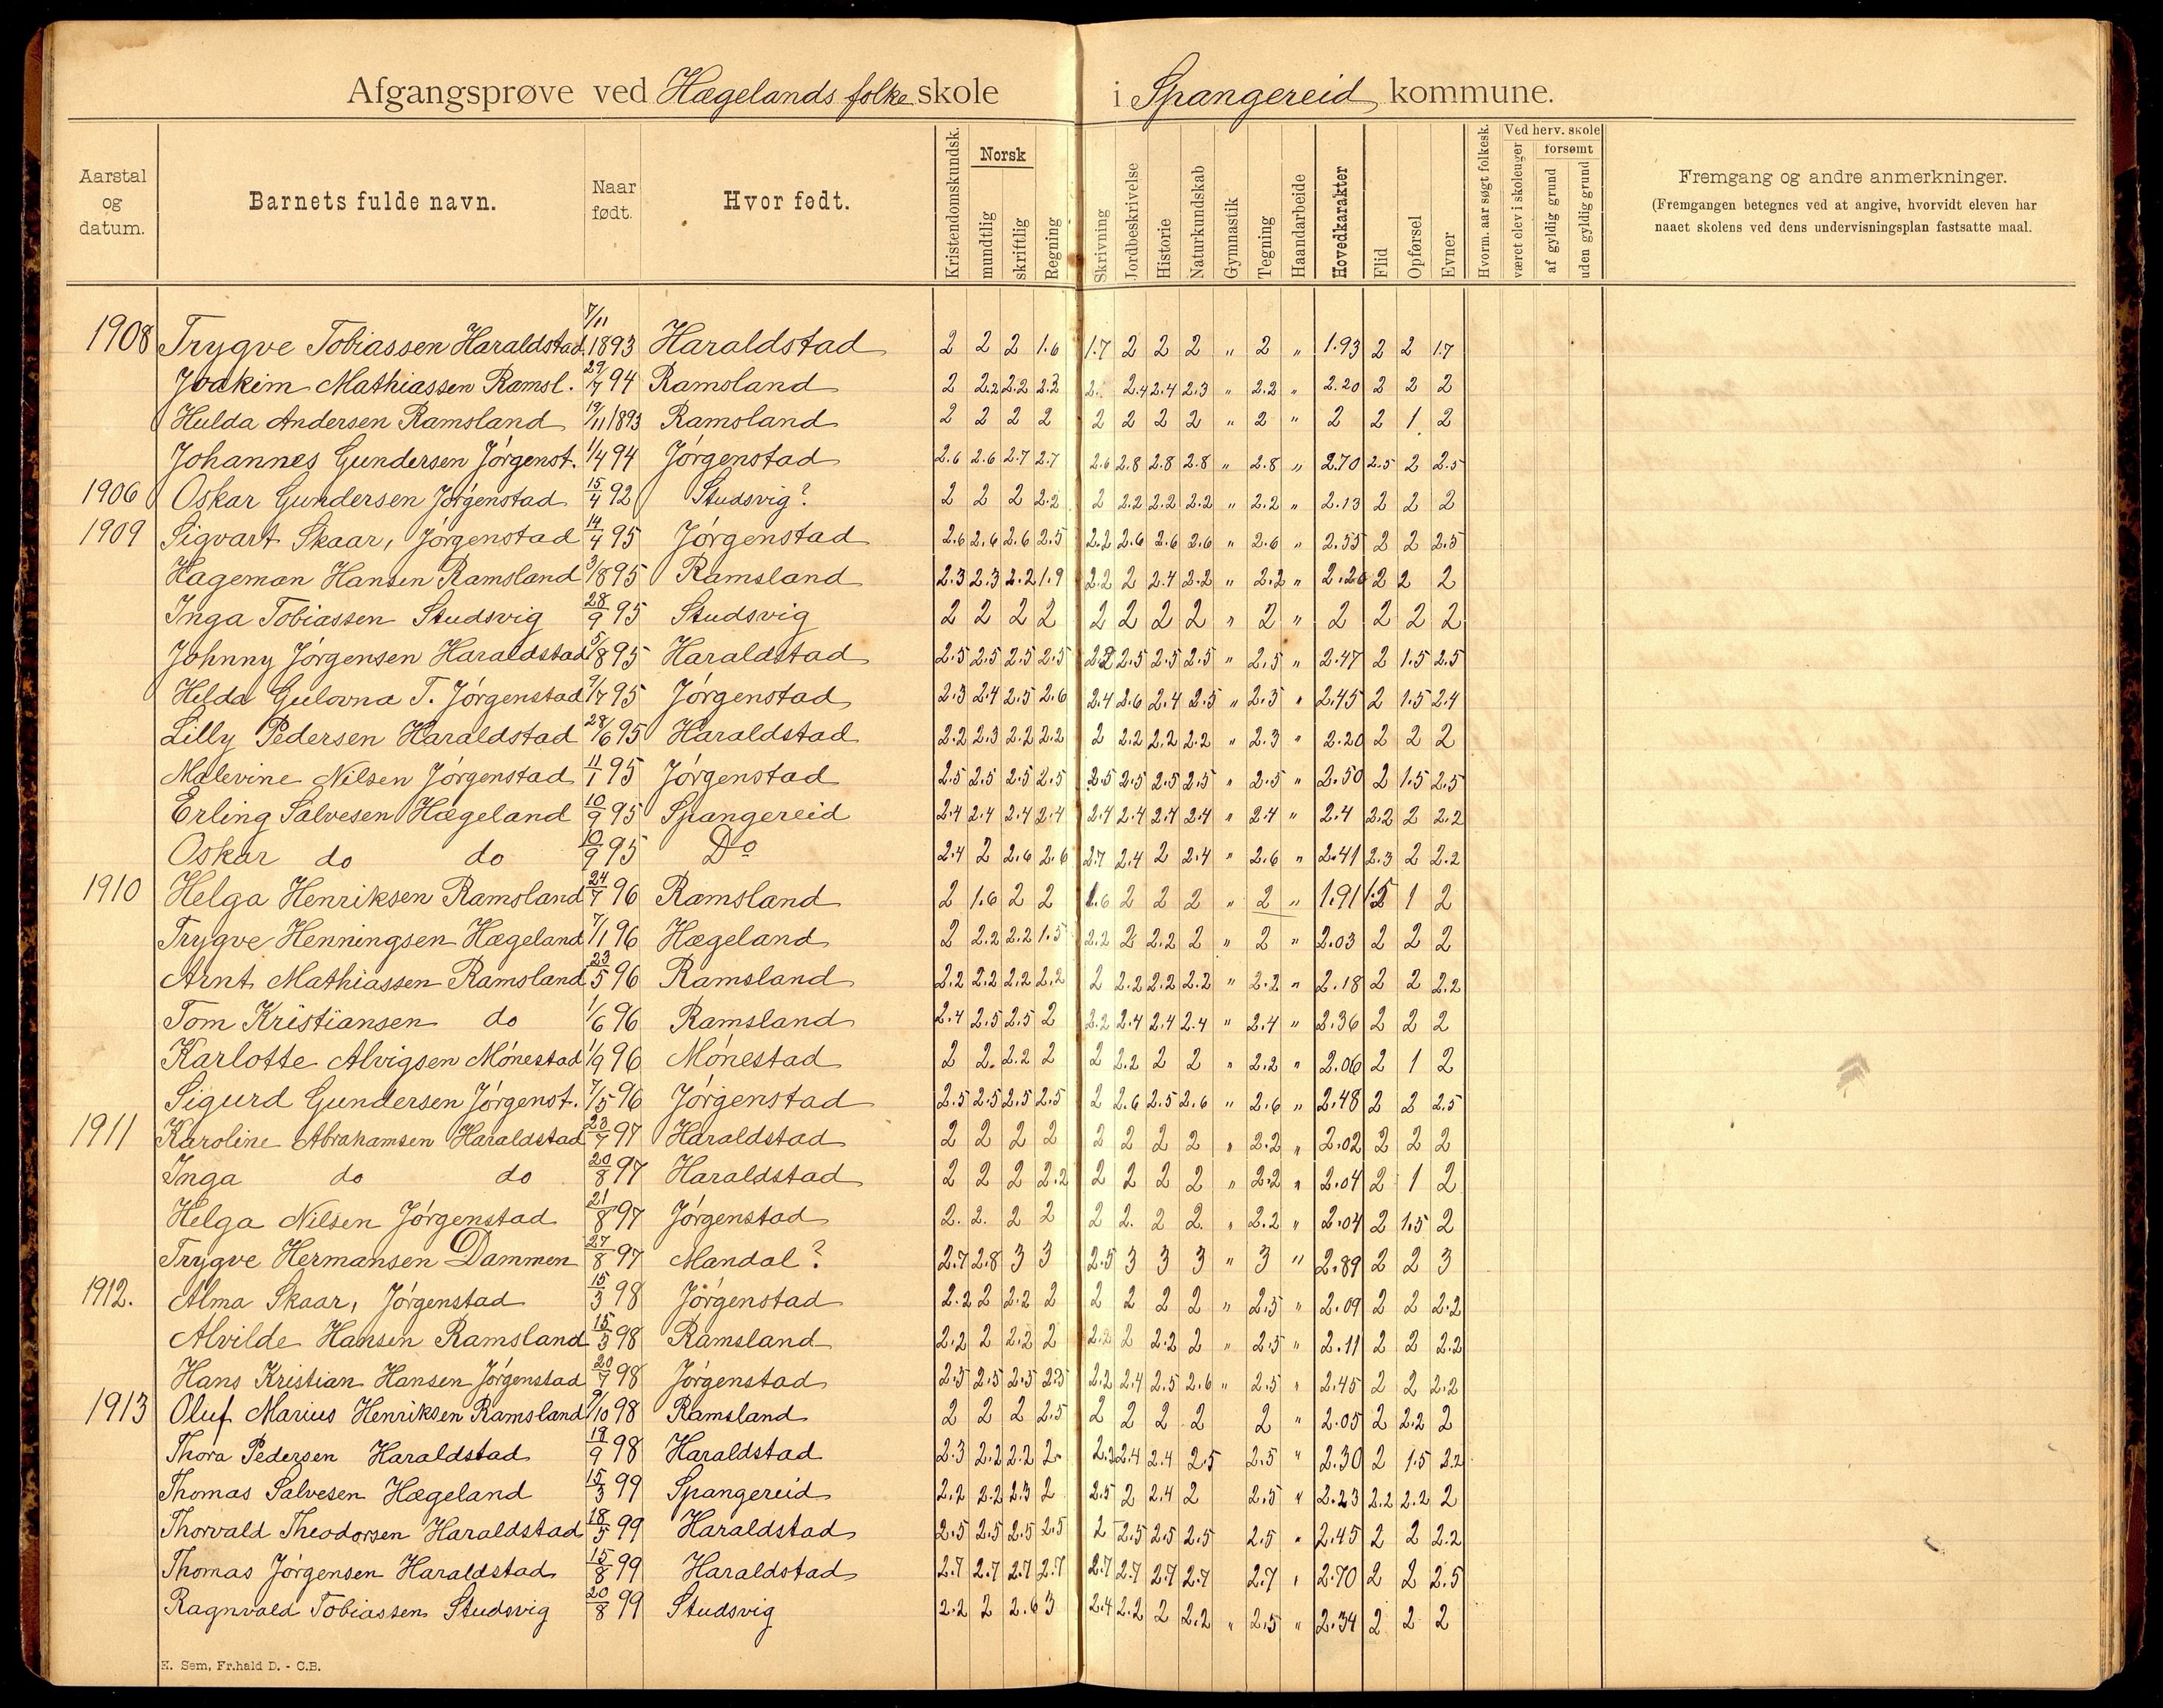 Afgangsprøve ved Hægelands folke skole i Spangereid kommune.
Aarstal og datum. Barnets fulde navn. Naar født. Hvor født. Kristendomskundsk. Norsk mundtlig skriftlig Regning Skrivning Jordbeskrivelse Historie Naturkundskab Gymnastik Tegning Haandarbeide Hovedkarakter Flid Opførsel Evner Hvorm. aar søgt folkesk. Ved herv. skole været elev i skoleuger forsømt af gyldig grund uden gyldig grund Fremgang og andre anmerkninger.
(Fremgangen betegnes ved at angive, hvorvidt eleven har
naaet skolens ved dens undervisningsplan fastsatte maal.
1908 Trygve Tobiassen Haraldstad 7/11 1893 Haraldstad 2 2 2 1.6 1.7 2 2 2 " 2 " 1.93 2 2 1.7
Joakim Mathiassen Ramsl. 29/7 94 Ramsland 2 2.2 2.2 2.2 2. 2.4 2.4 2.3 " 2.2 " 2.20 2 2 2
Hulda Andersen Ramsland 19/11 1893 Ramsland 2 2 2 2 2 2 2 2 " 2 " 2 2 1 2
Johannes Gundersen Jórgenst. 11/4 94 Jórgenstad 2.6 2.6 2.7 2.7 2.6 2.8 2.8 2.8 " 2.8 " 2.70 2.5 2 2.5
1906 Oskar Gundersen Jórgenstad 15/4 92 Studsvig? 2 2 2 2.2 2 2.2 2.2 2.2 " 2.2 " 2.13 2 2 2
1909 Sigvart Skaar, Jórgenstad 14/4 95 Jórgenstad 2.6 2.6 2.6 2.5 2.2 2.6 2.6 2.6 " 2.6 " 2.55 2 2 2.5
Hageman Hansen Ramsland 3/8 95 Ramsland 2.3 2.3 2.2 1.9 2.2 2 2.4 2.2 " 2.2 " 2.20 2 2 2
Inga Tobiassen Studsvig 28/9 95 Studsvig 2 2 2 2 2 2 2 2 " 2 " 2 2 2 2
Johnny Jórgensen Haraldstad 5/8 95 Haraldstad 2.5 2.5 2.5 2.5 2.2 2.5 2.5 2.5 " 2.5 " 2.47 2 1.5 2.5
Helda Gulovna T. Jórgenstad 9/7 95 Jórgenstad 2.3 2.4 2.5 2.6 2.4 2.6 2.4 2.5 " 2.5 " 2.45 2 1.5 2.4
Lilly Pedersen Haraldstad 28/6 95 Haraldstad 2.2 2.3 2.2 2.2 2 2.2 2.2 2.2 " 2.3 " 2.20 2 2 2
Malevine Nilsen Jórgenstad 11/1 95 Jórgenstad 2.5 2.5 2.5 2.5 2.5 2.5 2.5 2.5 " 2.5 " 2.50 2 1.5 2.5
Erling Salvesen Hægeland 10/9 95 Spangereid 2.4 2.4 2.4 2.4 2.4 2.4 2.4 2.4 " 2.4 " 2.4 2.2 2 2.2
Oskar do do 10/9 95 Do 2.4 2 2.6 2.6 2.7 2.4 2 2.4 " 2.6 " 2.41 2.3 2 2.2
1910 Helga Henriksen Ramsland 24/7 96 Ramsland 2 1.6 2 2 1.6 2 2 2 " 2 " 1.91 1.5 1 2
Trygve Henningsen Hægeland 7/1 96 Hægeland 2 2.2 2.2 1.5 2.2 2 2.2 2 " 2 " 2.03 2 2 2
Arnt Mathiassen Ramsland 23/5 96 Ramsland 2.2 2.2 2.2 2.2 2 2.2 2.2 2.2 " 2.2 " 2.18 2 2 2.2
Tom Kristiansen do 1/6 96 Ramsland 2.4 2.5 2.5 2 2.2 2.4 2.4 2.4 " 2.4 " 2.36 2 2 2
Karlotte Alvigsen Mónestad 1/9 96 Mónestad 2 2. 2.2 2 2 2.2 2 2 " 2.2 " 2.06 2 1 2
Sigurd Gundersen Jórgenst. 7/5 96 Jórgenstad 2.5 2.5 2.5 2.5 2 2.6 2.5 2.6 " 2.6 " 2.48 2 2 2.5
1911 Karoline Abrahamsen Haraldstad 23/7 97 Haraldstad 2 2 2 2 2 2 2 2 " 2.2 " 2.02 2 2 2
Inga do do 20/8 97 Haraldstad 2 2 2 2.2 2 2 2 2 " 2.2 " 2.04 2 1 2
Helga Nilsen Jórgenstad 21/8 97 Jórgenstad 2. 2. 2 2 2 2. 2 2 " 2.2 " 2.04 2 1.5 2
Trygve Hermansen Dammen 27/8 97 Mandal? 2.7 2.8 3 3 2.5 3 3 3 " 3 " 2.89 2 2 3
1912. Alma Skaar, Jórgenstad 15/3 98 Jörgenstad 2.2 2 2.2 2 2 2 2 2 " 2.5 " 2.09 2 2 2.2
Alvilde Hansen Ramsland 15/3 98 Ramsland 2.2 2 2.2 2 2.2 2 2.2 2 " 2.5 " 2.11 2 2 2.2
Hans Kristian Hansen Jórgenstad 20/7 98 Jórgenstad 2.5 2.5 2.5 2.5 2.2 2.4 2.5 2.6 " 2.5 " 2.45 2 2 2.2
1913 Oluf Marius Henriksen Ramsland 9/10 98 Ramsland 2 2 2 2.5 2 2 2 2 2 " 2.05 2 2.2 2
Thora Pedersen Haraldstad 19/9 98 Haraldstad 2.3 2.2 2.2 2. 2.2 2.4 2.4 2.5 2.5 " 2.30 2 1.5 2.2
Thomas Salvesen Hægeland 15/3 99 Spangereid 2.2 2.2 2.3 2 2.5 2 2.4 2 2.5 " 2.23 2.2 2.2 2
Thorvald Theodorsen Haraldstad 18/5 99 Haraldstad 2.5 2.5 2.5 2.5 2 2.5 2.5 2.5 2.5 " 2.45 2 2 2.2
Thomas Jórgensen Haraldstad 15/8 99 Haraldstad 2.7 2.7 2.7 2.7 2.7 2.7 2.7 2.7 2.7 " 2.70 2 2 2.5
Ragnvald Tobiassen Studsvig 20/8 99 Studsvig 2.2 2 2.6 3 2.4 2.2 2 2.2 " 2.5 " 2.34 2 2 2
E. Sem, Fr.hald D. - C.B.